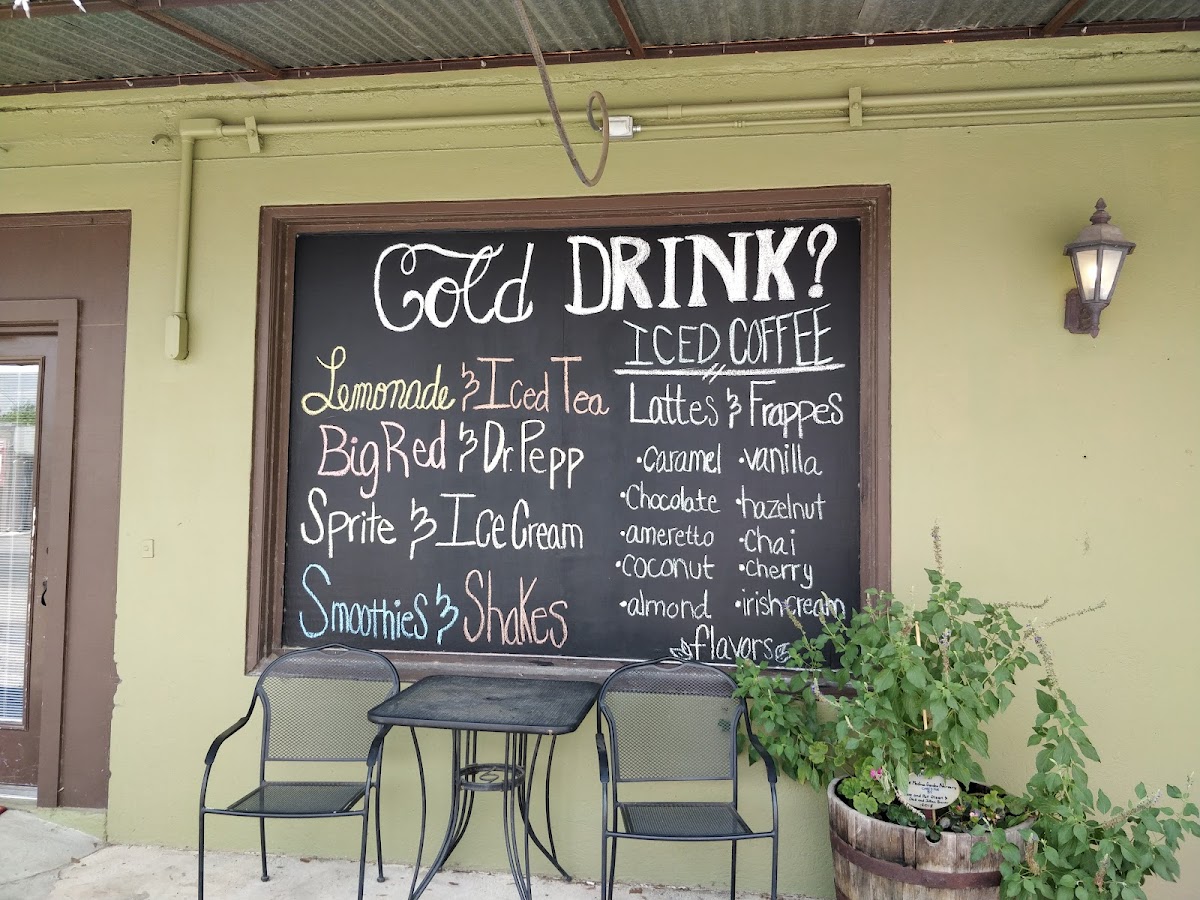 Cold DRINK?
Lemonade & Iced Tea
Big Red & Dr. Pepp
Sprite & Ice Cream
Smoothies & Shakes
ICED COFFEE
Lattes & Frappes
•caramel •vanilla
•Chocolate •hazelnut
•ameretto •chai
•coconut •cherry
•almond •irish cream
flavors